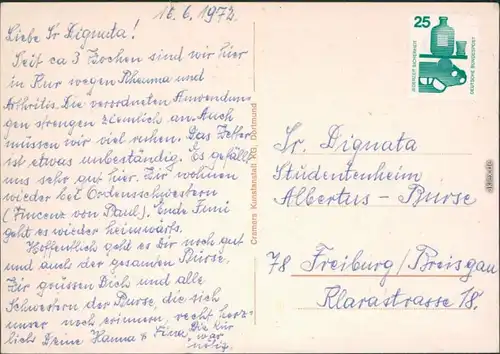 16.6.1972.
Liebe Sr Dignata!
Seit ca 3 Wochen sind wir hier
in Kur wegen Rheuma und
Arthritis. Die verordneten Anwendun-
gen strengen ziemlich an. Auch
müssen wir viel ruhen. Das Wetter
ist etwas unbeständig. Es gefällt
uns sehr gut hier. Wir wohnen
wieder bei Ordensschwestern
(Vincenz von Paul). Ende Juni
geht es wieder heimwärts.
Hoffentlich geht es Dir noch gut
und auch der gesamten Burse.
Wir grüssen Dich und alle
Schwestern der Burse, die sich
unser noch erinnern, recht herz-
lich Deine Hanna & Fina. Die Kur
war
nötig.
Cramers Kunstanstalt KG, Dortmund
25
JEDERZEIT SICHERHEIT
DEUTSCHE BUNDESPOST
Sr. Dignata
Studentenheim
Albertus - Burse
78 Freiburg/Breisgau
Klarastrasse 18.